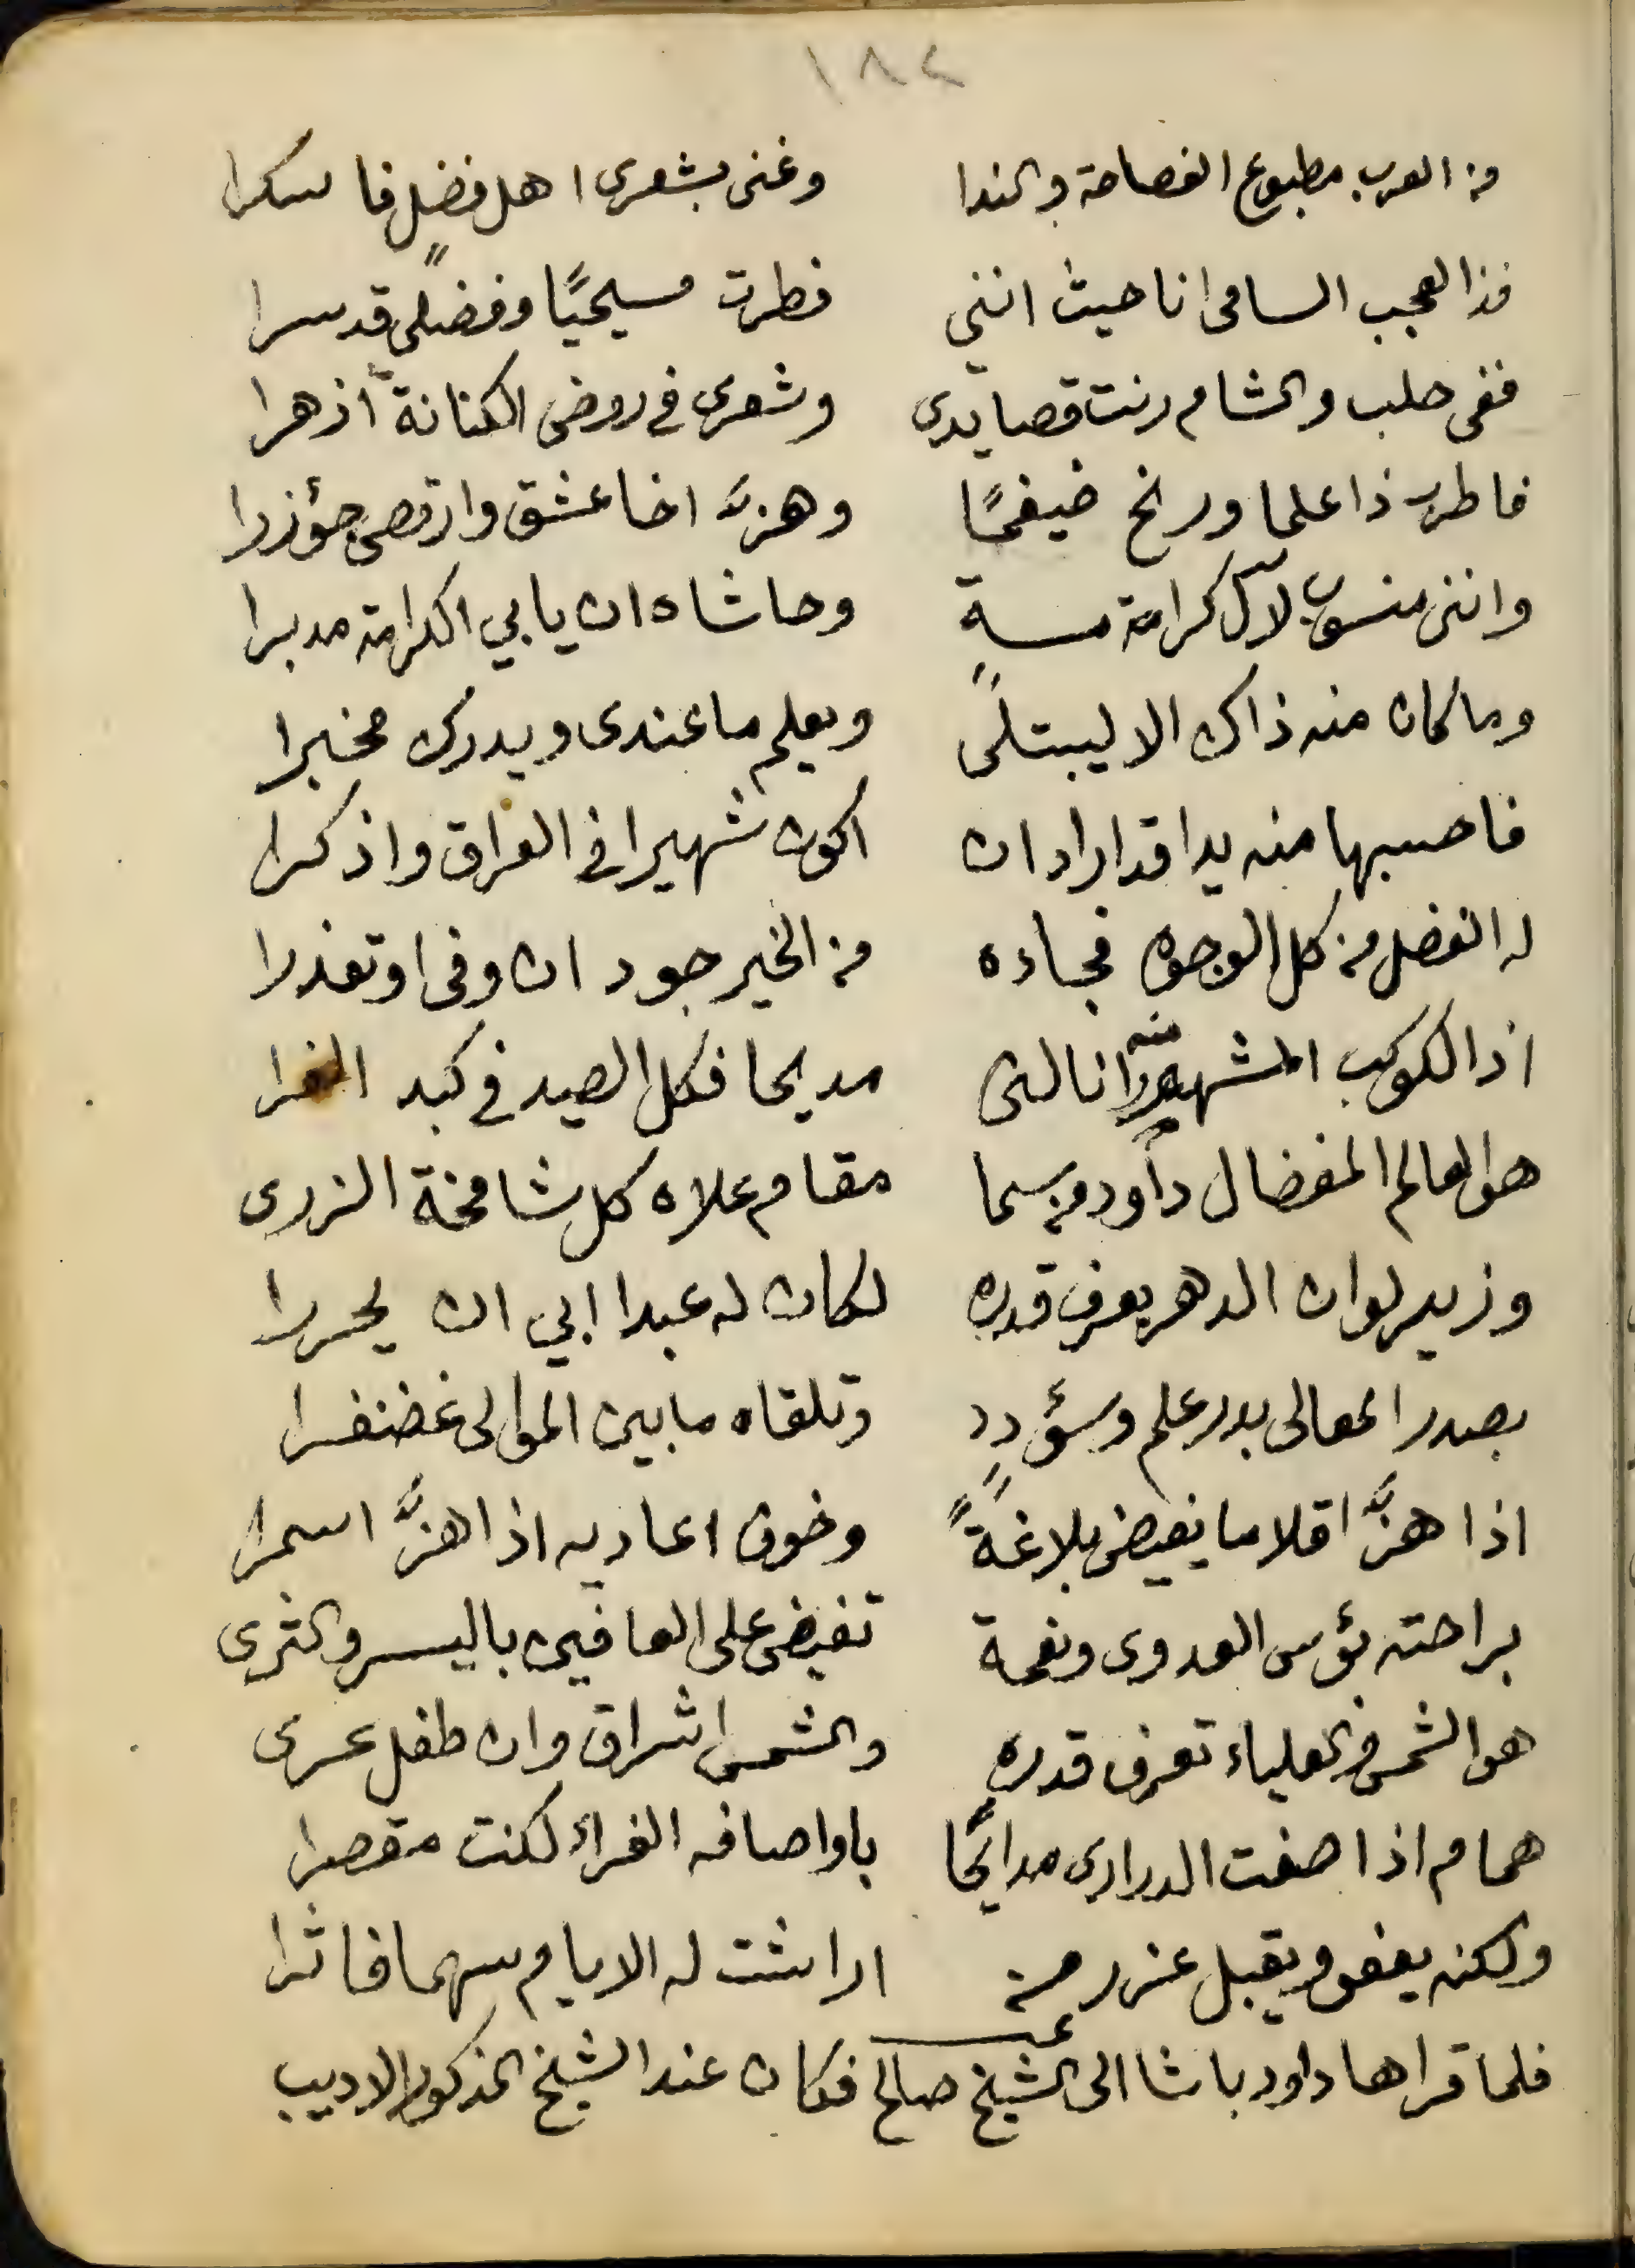 ١٨٢
من العرب مطبوع الفصاحة والندا وغنى بشعرى اهل فضل فاسكرا
فذا العجب السامى انا حيث اننى فطرت مسيحيًا وفضلى قد سرا
ففى حلب والشام رنت قصايدى وشعرى فى روض الكنانة أزهرا
فاطرب ذا علما ورنح ضيغمًا وهزَّ اخا عشق وارقص جؤزرا
واننى منسوب لآل كرامة وحاشاه ان يابي الكرامة مدبرا
وما كان منه ذاك الا ليبتلى ويعلم ما عندى ويدرك مخبرا
فاحسبها منه يدا قد اراد ان اكون شهيرا فى العراق واذكرا
له الفضل من كل الوجوه فجاءه من الخير جود ان وفى او تعذرا
اذا الكوكب المشهور منه انالنى مديحا فكل الصيد فى كبد الفرا
هو العالم المفضال داود من سما مقام علاه كل شامخة الزرى
وزير لو ان الدهر يعرف قدره لكان له عبدا ابي ان يحررا
بصدر المعالى بدر علم وسؤدد وتلقاه ما بين الموالى غضنفرا
اذا هزَّ اقلاما يفيض بلاغةً وخوف اعاديه اذا هزَّ اسمرا
براحته بؤس العدوى ونعمة تفيض على العافين باليسر والثرى
هو الشمس والعلياء تعرف قدره والشمس اشراق وان طفل عرى
همام اذا صغت الدرارى مدايحًا باواصافه الغراء لكنت مقصرا
ولكنه يعفو ويقبل عذر من اراشت له الايام سهما فاثرا
فلما قراها داود باشا الى الشيخ صالح فكان عند الشيخ المذكور الاديب